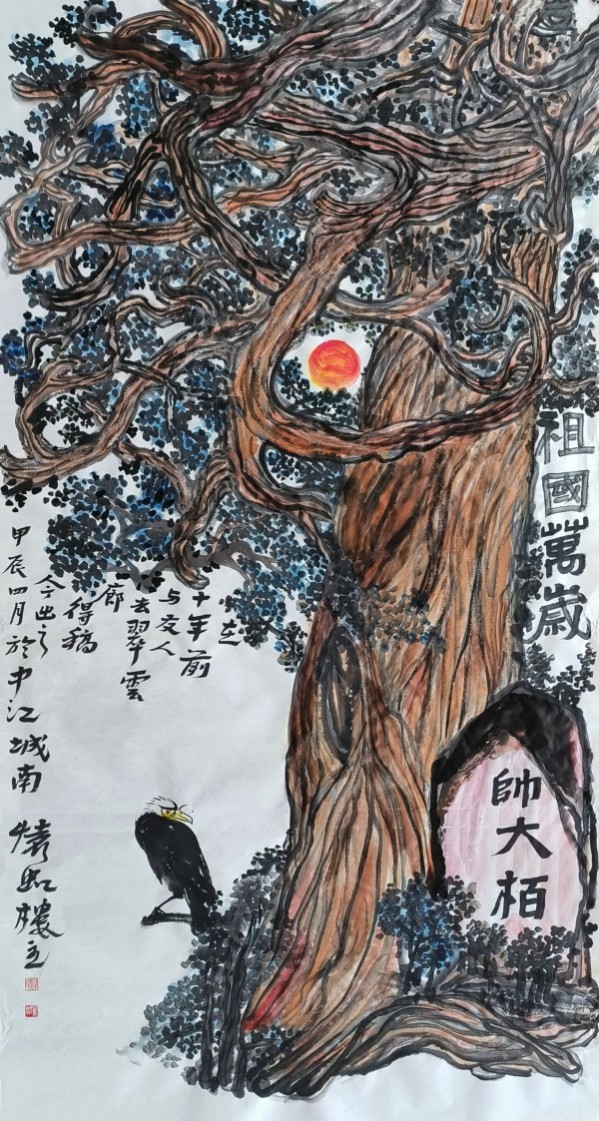 祖國萬歲
帥大栢
在
十年前
与友人
去翠雲
廊
得稿
今
甲辰四月於中江城南 樓主